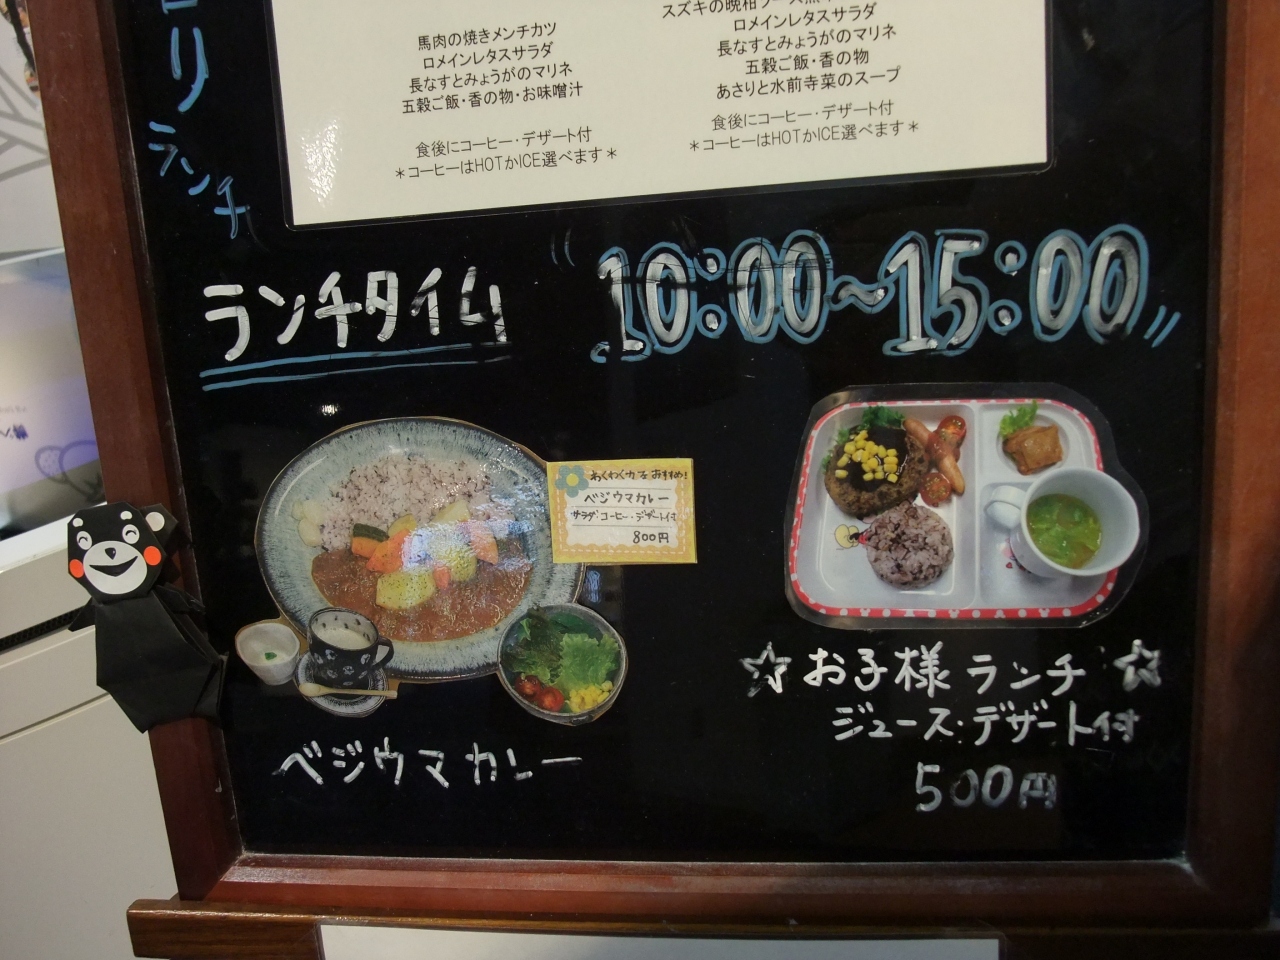 ロリ
ランチ
馬肉の焼きメンチカツ
ロメインレタスサラダ
長なすとみょうがのマリネ
五穀ご飯・香の物・お味噌汁
食後にコーヒー・デザート付
＊コーヒーはHOTかICE選べます＊
スズキの晩柑ソース
ロメインレタスサラダ
長なすとみょうがのマリネ
五穀ご飯・香の物
あさりと水前寺菜のスープ
食後にコーヒー・デザート付
＊コーヒーはHOTかICE選べます＊
ランチタイム "10:00～15:00"
わくわくカフェおすすめ!
ベジウマカレー
サラダ・コーヒー・デザート付
800円
ベジウマカレー
☆お子様ランチ☆
ジュース・デザート付
500円